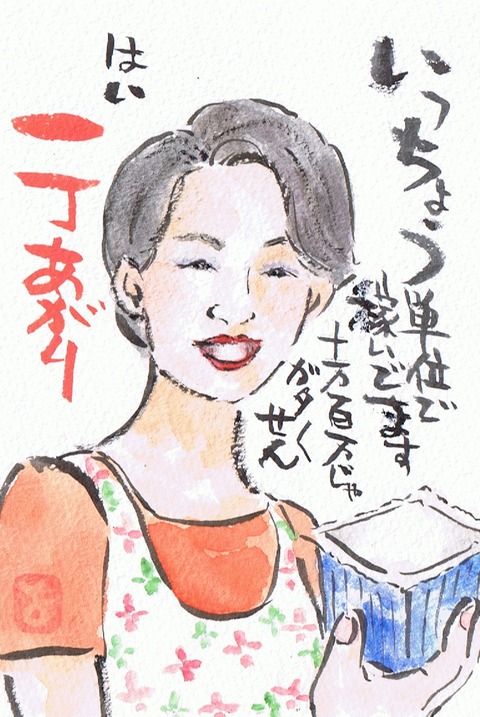 いっちょう
単位で
稼いでます
十万百万じゃ
がタくせん
はい
一丁あがり